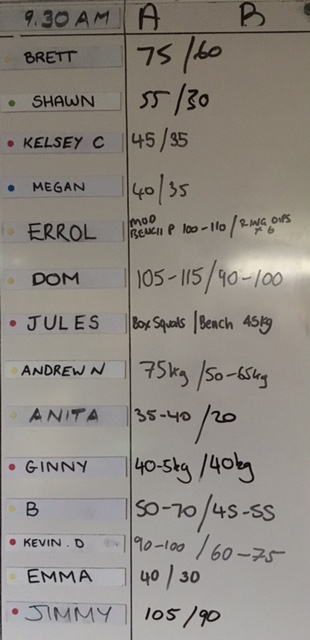 9.30 AM A B
BRETT 75/60
SHAWN 55/30
KELSEY C 45/35
MEGAN 40/35
ERROL MOD BENCH P 100-110 / RING DIPS x 6
DOM 105-115/90-100
JULES Box Squats | Bench 45kg
ANDREW N 75kg /50-65kg
ANITA 35-40 /20
GINNY 40-5kg /40kg
B 50-70/45-55
KEVIN.D 90-100 / 60-75
EMMA 40/30
JIMMY 105/90